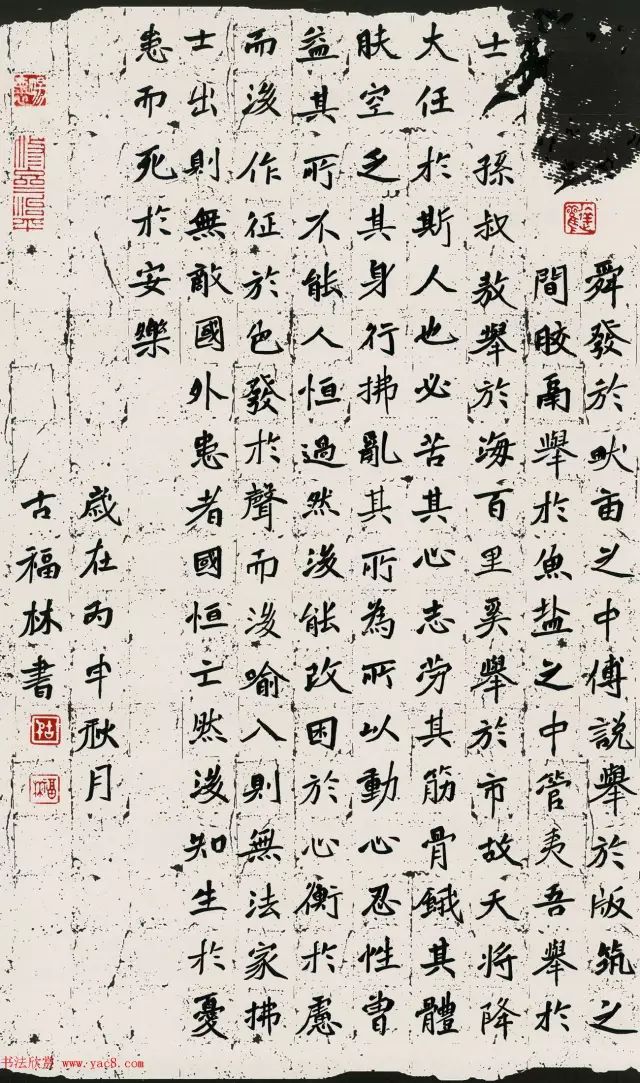 舜發於畎畝之中傅說舉於版筑之
間膠鬲舉於魚盐之中管夷吾舉於
士孫叔敖舉於海百里奚舉於市故天將降
大任於斯人也必苦其心志劳其筋骨餓其體
肤空乏其身行拂亂其所為所以動心忍性曾
益其所不能人恒過然後能改困於心衡於慮
而後作征於色發於聲而後喻入則無法家拂
士出則無敵國外患者國恒亡然後知生於憂
患而死於安樂
歲在丙申秋月
古福林書
书法欣赏 www.yac8.com